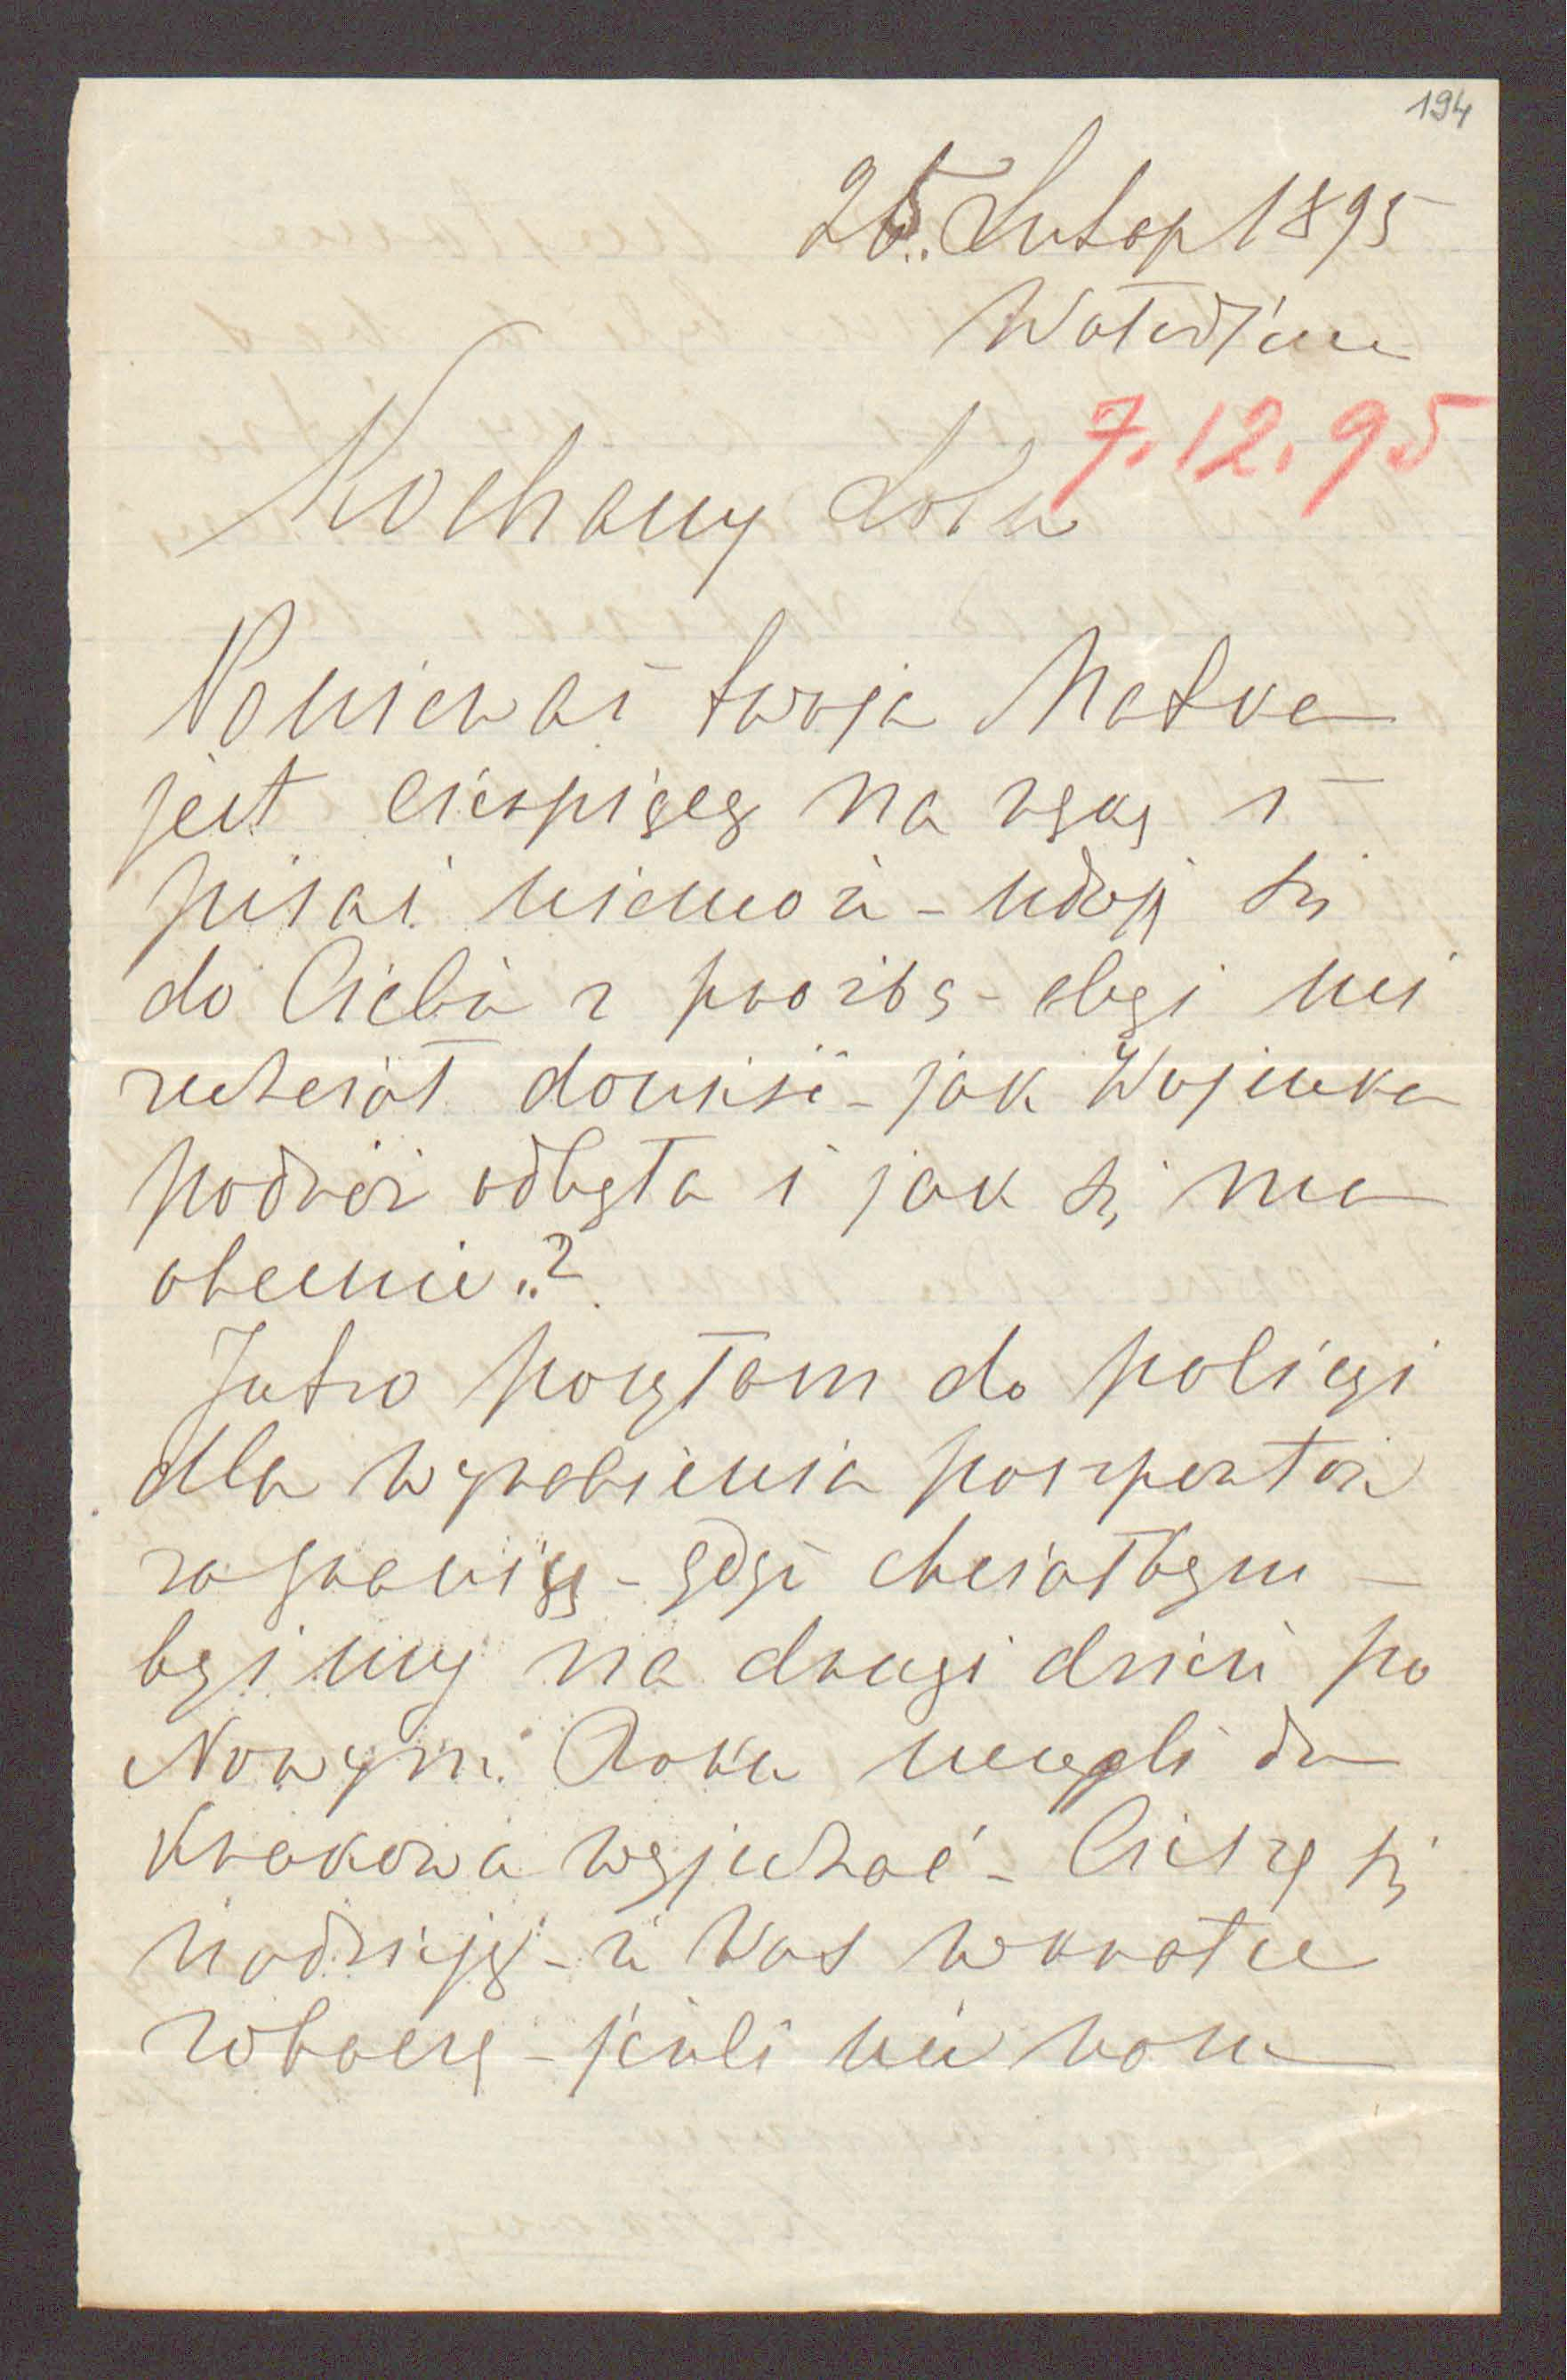 194
25. Listop 1895
Wołodźin
7.12.95
Kochany Lolu
Ponieważ twoja Matka
jest cierpiącą na rękę i
pisać niemoże - udaję się
do Ciebie z prośbą - abyś mi
zechciał donieść - jak Wujenka
podróż odbyła i jak się ma
obecnie..?
Jutro posyłam do policyi
dla wyrobienia paszportów
zagranicę - gdyż chciałbym -
byśmy na drugi dzień po
Nowym Roku mogli do
Krakowa wyjechać - Cieszę się
nadzieją - że Was wkrótce
zobaczę - jeżeli nie wam